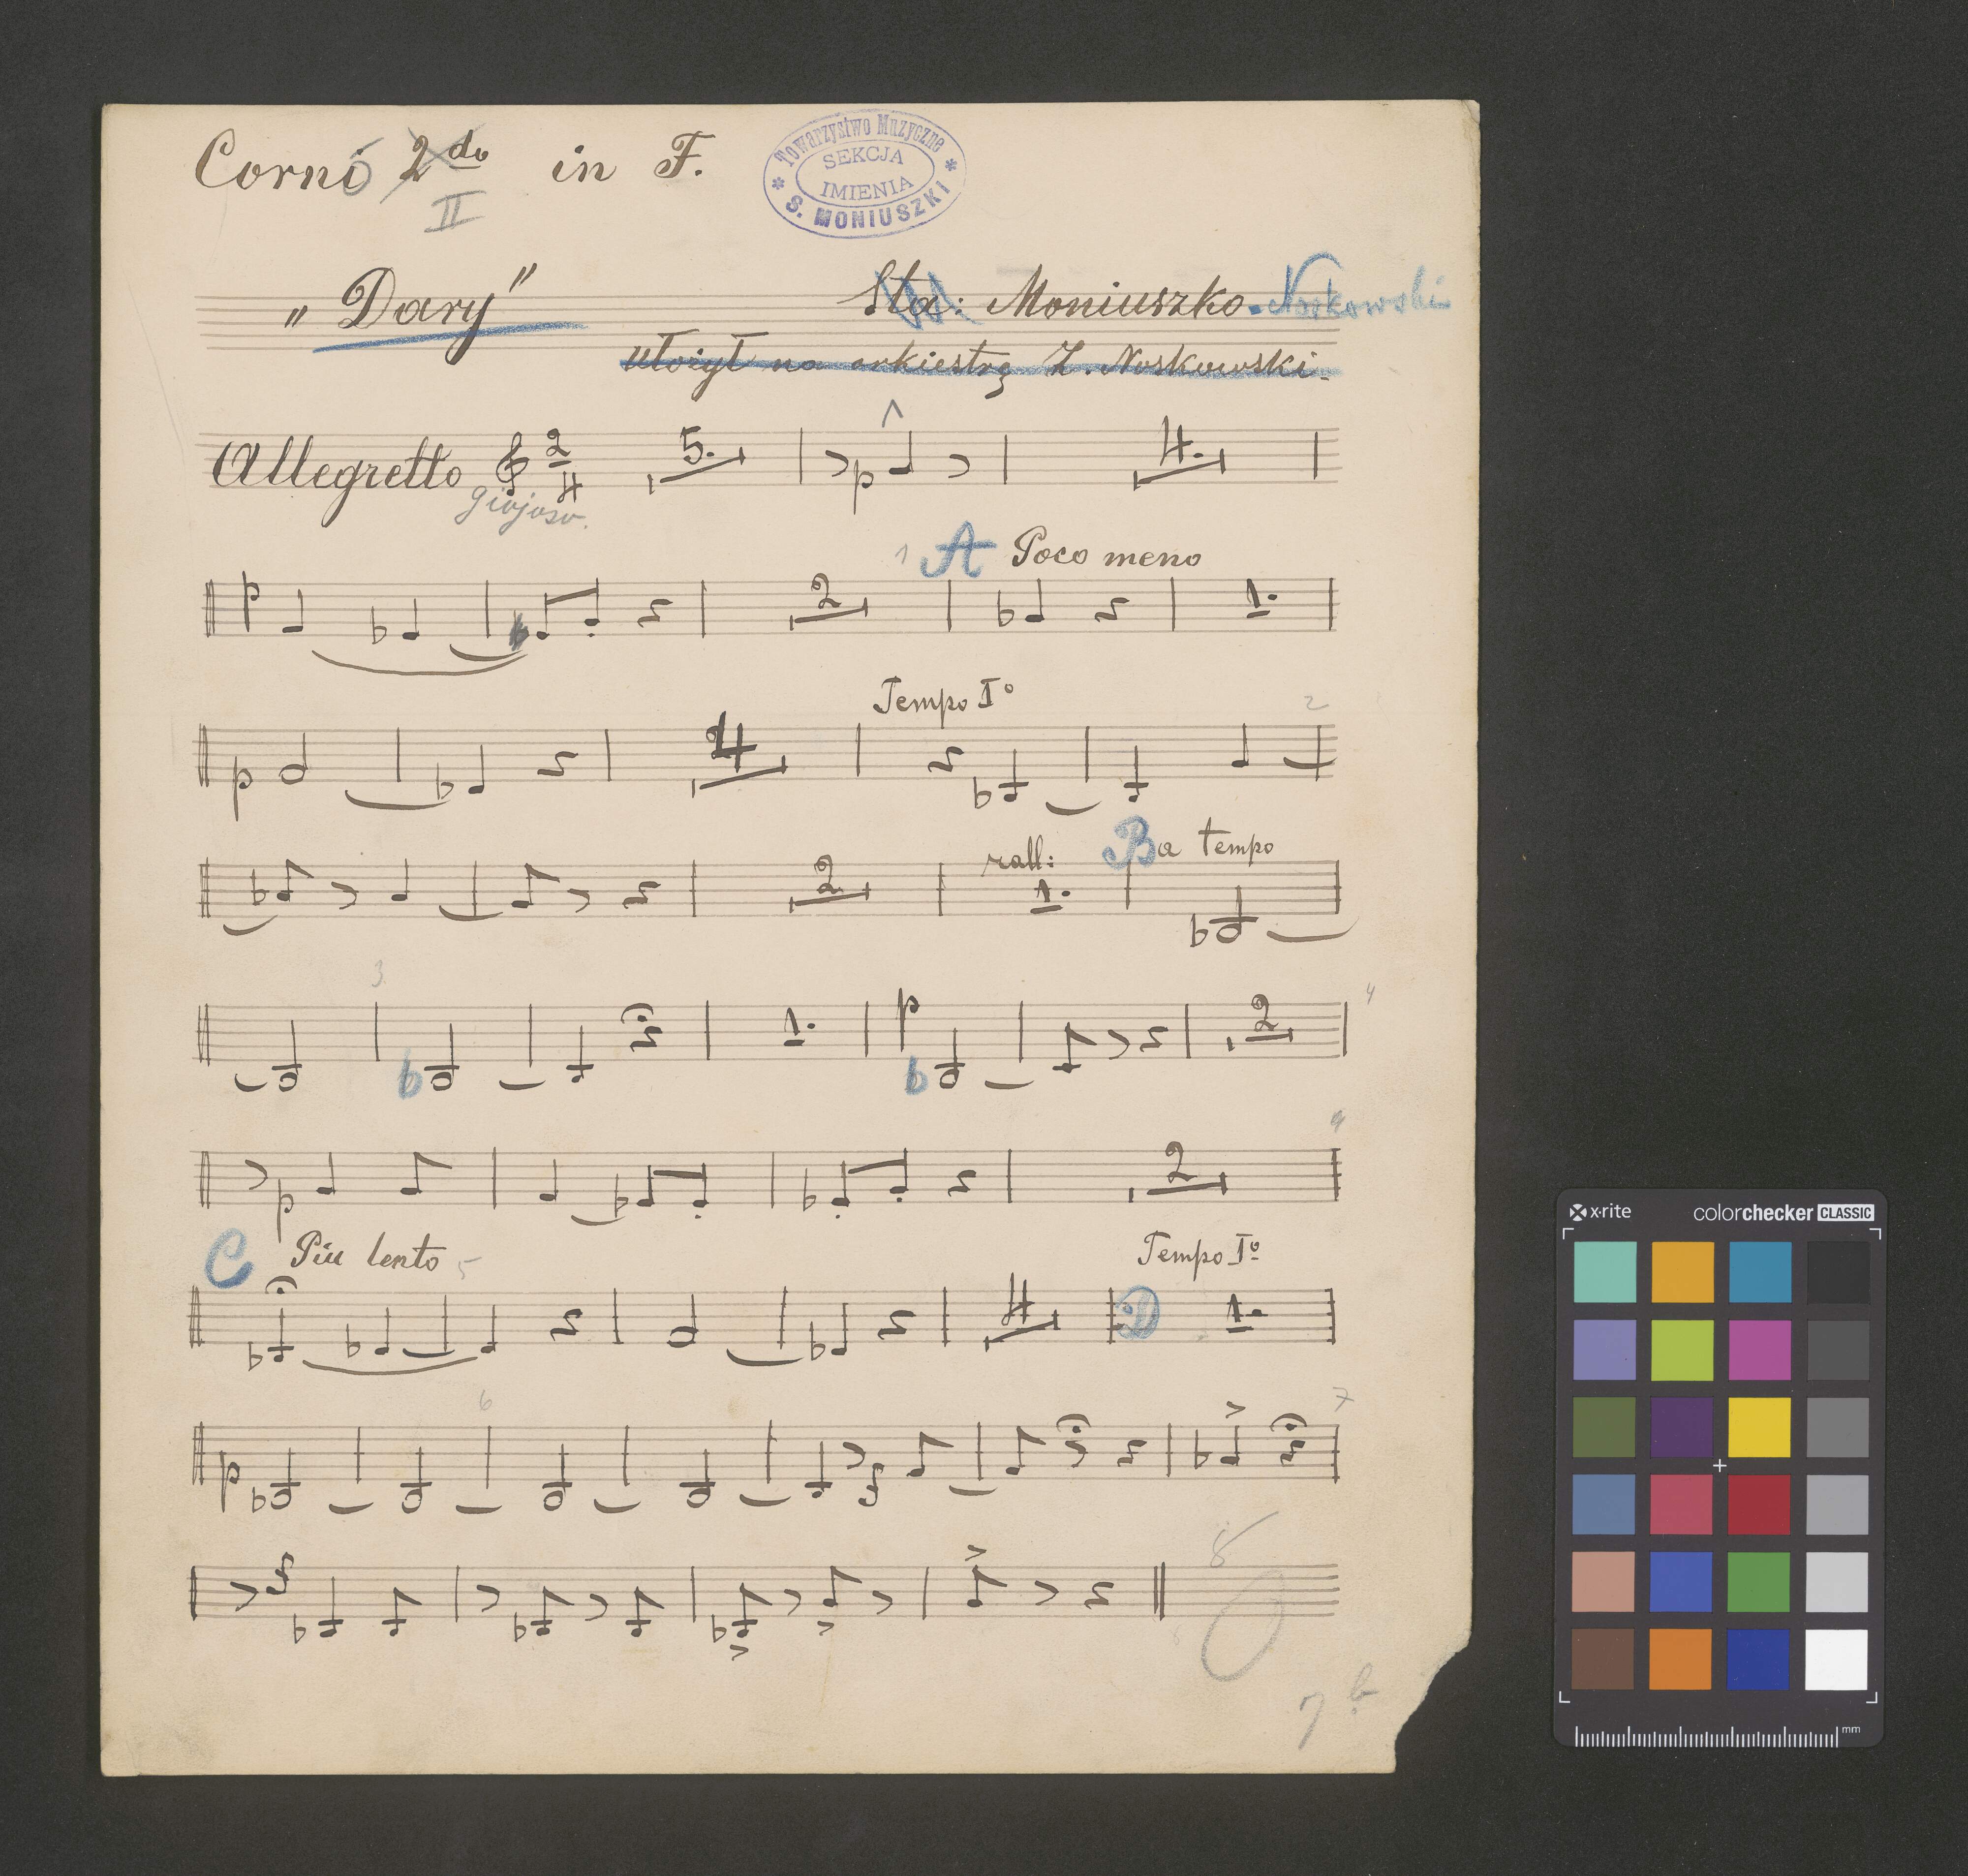 Corni 2do in F.
II
Towarzystwo Muzyczne
SEKCJA
IMIENIA
S. MONIUSZKI
„Dary" Sta: Moniuszko - Noskowski
ułożył na orkiestrę Z. Noskowski.
Allegretto 2 4 5. p 4.
giojoso.
1 A Poco meno
p 2 1.
Tempo I° 2
p 4
rall: B a tempo
2 1.
3 4
1. p 2
4
p 2
C Piu lento 5 Tempo I°
4 D 1.
6 7
p
8
7 b
x·rite colorchecker CLASSIC
mm